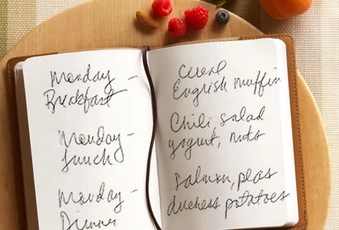 Monday -
Breakfast
Monday -
Lunch
Monday -
Dinner
Cereal
English muffin
Chili salad
yogurt, nuts
Salmon, peas
duchess potatoes